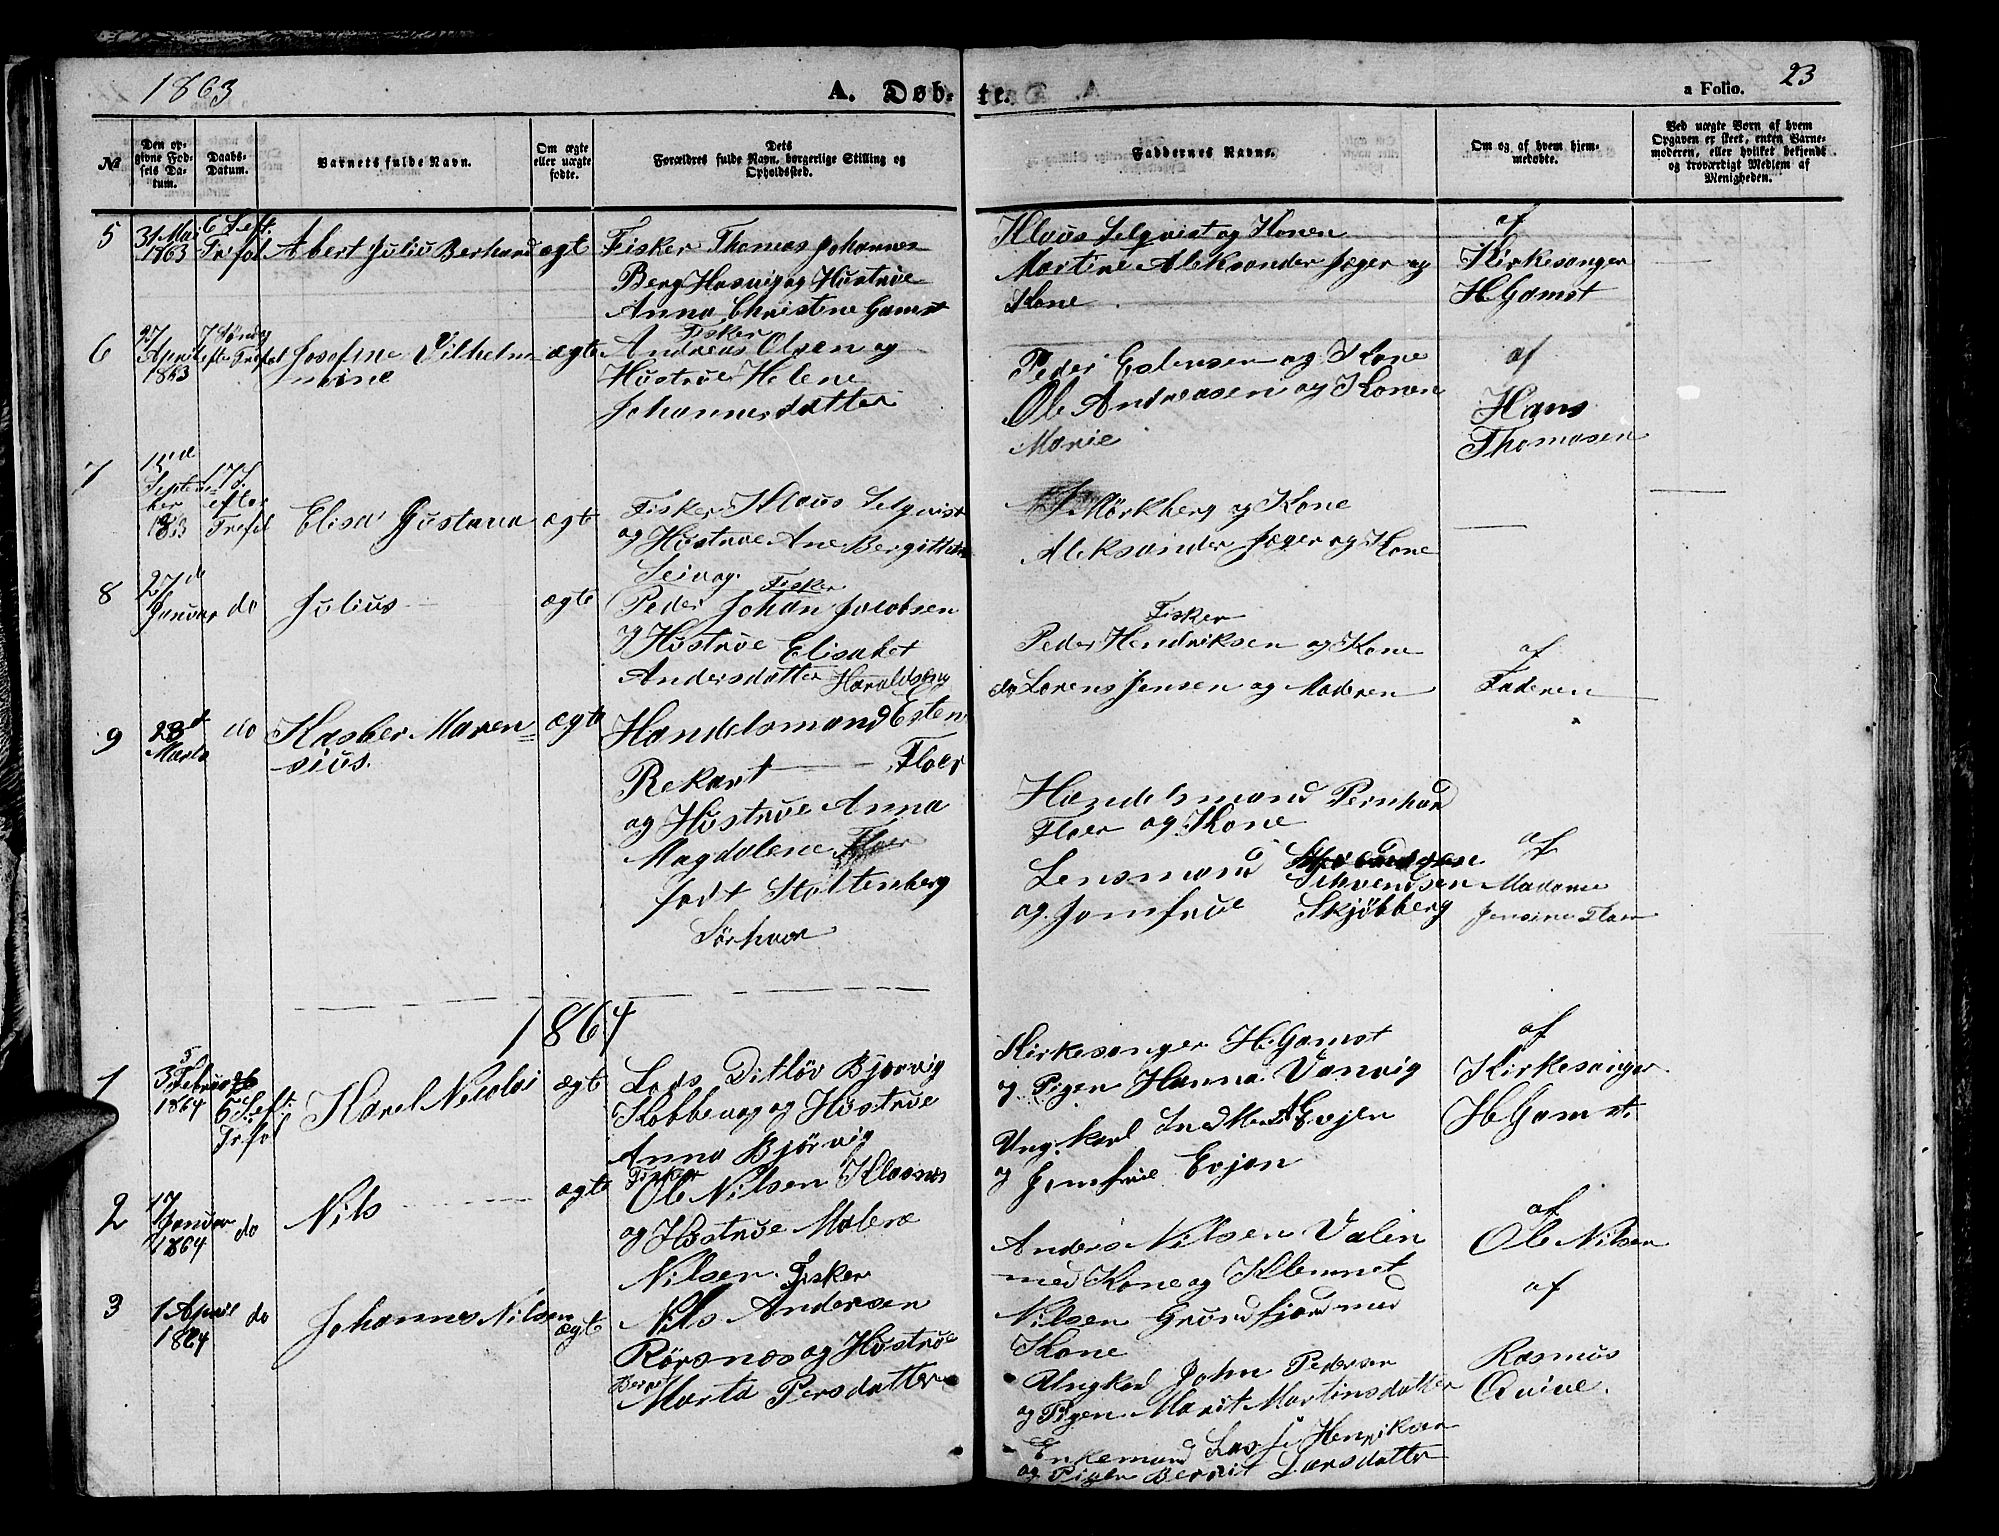 1863
A. Døb-te.
a Folio. 23
№
Den op-
givne Fød-
sels Da-
tum.
Daabs-
Datum.
Barnets fulde Navn.
Om ægte
eller uægte
fødte.
Dets
Forældres fulde Navn, borgerlige Stilling og
Opholdssted.
Faddernes Navne.
Om og af hvem hjem-
medøbte.
Ved uægte Børn af hvem
Opgaven er skeet, enten Barne-
moderen, eller hvilket bekjendt
og troværdigt Medlem af
Menigheden.
5
31 Mai
1863
6 S eft.
Trefol
Abert Juliu Berhard
ægt
Fisker Thomas Johannes
Berg Hasvig og Hustrue
Anna Christine Gamst
Klaus Selqvist og Konen
Martine Aleksander Jæger og
Kone
af
Kirkesanger
H Gamst
6
27
April
1863
7 Søndag
efter Trefol
Josefine Vilhelm
mine
ægte
Fisker
Andreas Olsen og
Hustrue Helene
Johannesdatter
Peder Estensen og Kone
Ole Andreasen og Konen
Marie
af
Hans
Thomasen
7
15de
Septem-
ber
1863
17 S.
efter
Trefol
Elisa Gustava
ægt
Fisker Klaus Selqvist
og Hustrue Ane Bergitte
Seivag.
J Mørkberg og Kone
Aleksander Jæger og Kone
8
27d
Januar
do
Julius
ægte
Fisker
Peder Johan Jacobsen
og Hustrue Elisabet
Andersdatter Haraldseng
Fisker
Peder Hendriksen og Kone
do Lorens Jensen og Moderen
af
Faderen
9
23d
Marts
do
Kasber Maren=
sius.
ægte
Handelsmand Esten
Rekart Floer
og Hustrue Anna
Magdalene
født Stoltenberg
Sørhaven
Handelsmand Pernhard
Floer og Kone
Lensmand
Schvendsen
og Jomfrue Skjøbberg
af
Madame
Jensine Floer
1864
1
3 Februar
1864
6 S eft.
Trfol
Karel Nicolai
ægte
Lods Ditløv Bjørvig
Kobbevag og Hustrue
Anna Bjørvig
Kirkesanger H Gamst
og Pigen Hanna Vanvig
Ung.karl Evjen
og Jomfrue Evjen
af
Kirkesanger
H Gamst.
2
17
Januar
1864
do
Nils
ægte
Fisker
Ole Nilsen Klaanes
og Hustrue Malene
Nilsen.
Anders Nilsen Valen
med Kone og Klemmet
Nilsen Grundfjord med
Kone
af
Ole Nilsen
3
1 April
1864
do
Johannes Nilsen
ægte
Fisker
Nils Andersen
Rørsnes og Hustrue
Berret
Marta Persdatter
Ungkarl John Pedersen
og Pigen Marit Martinsdatter
Enkemand Lasse Henriksen
og Pigen Berrit Larsdatter
af
Rasmus
Qvive.